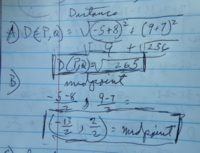 Distance
A) D(P,Q) = √(-5+8)² + (9+7)²
√9 + √256
D(P,Q) = √265
B) midpoint
-5-8/2 , 9-7/2 =
(-13/2 , 2/2) = midpoint